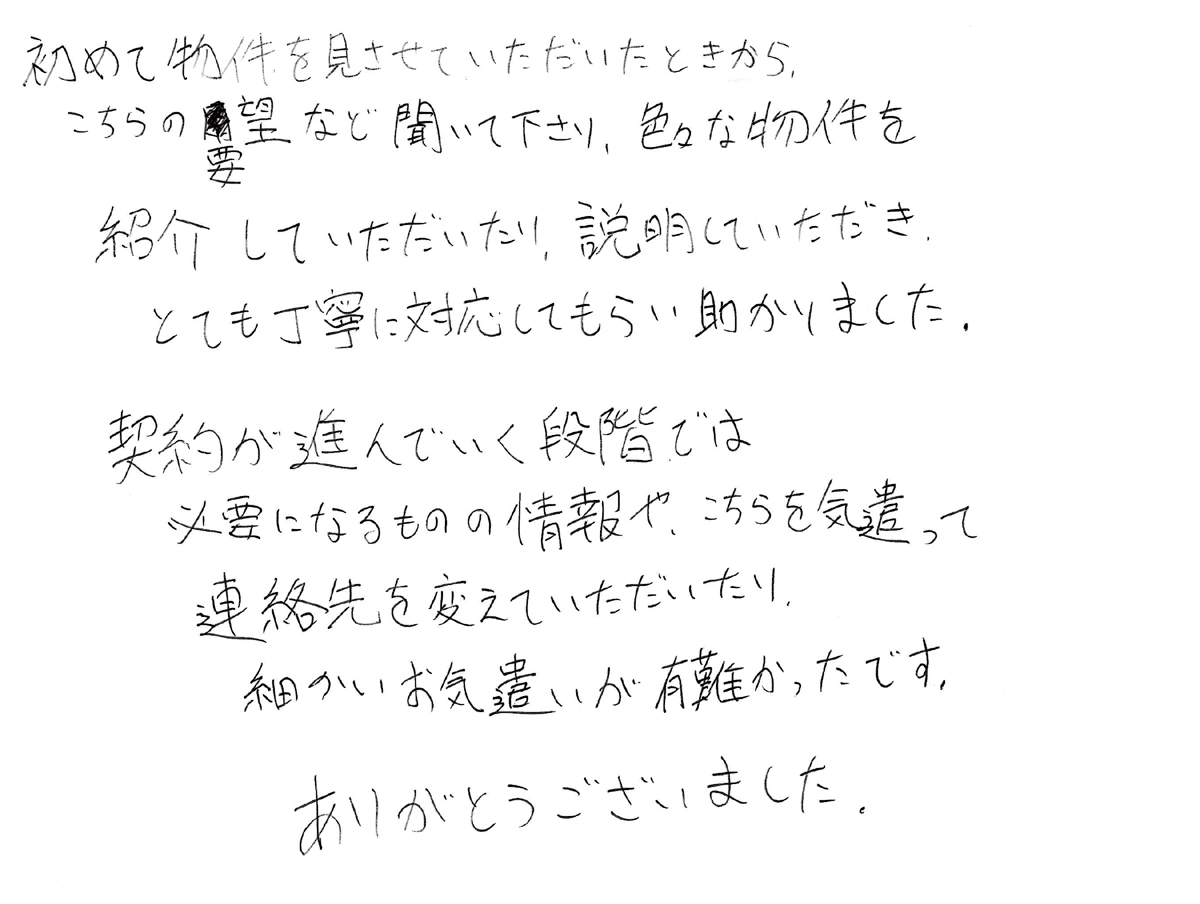 初めて物件を見させていただいたときから、
こちらの要望など聞いて下さり、色々な物件を
紹介していただいたり、説明していただき、
とても丁寧に対応してもらい助かりました。
契約が進んでいく段階では
必要になるものの情報や、こちらを気遣って
連絡先を変えていただいたり、
細かいお気遣いが有難かったです。
ありがとうございました。